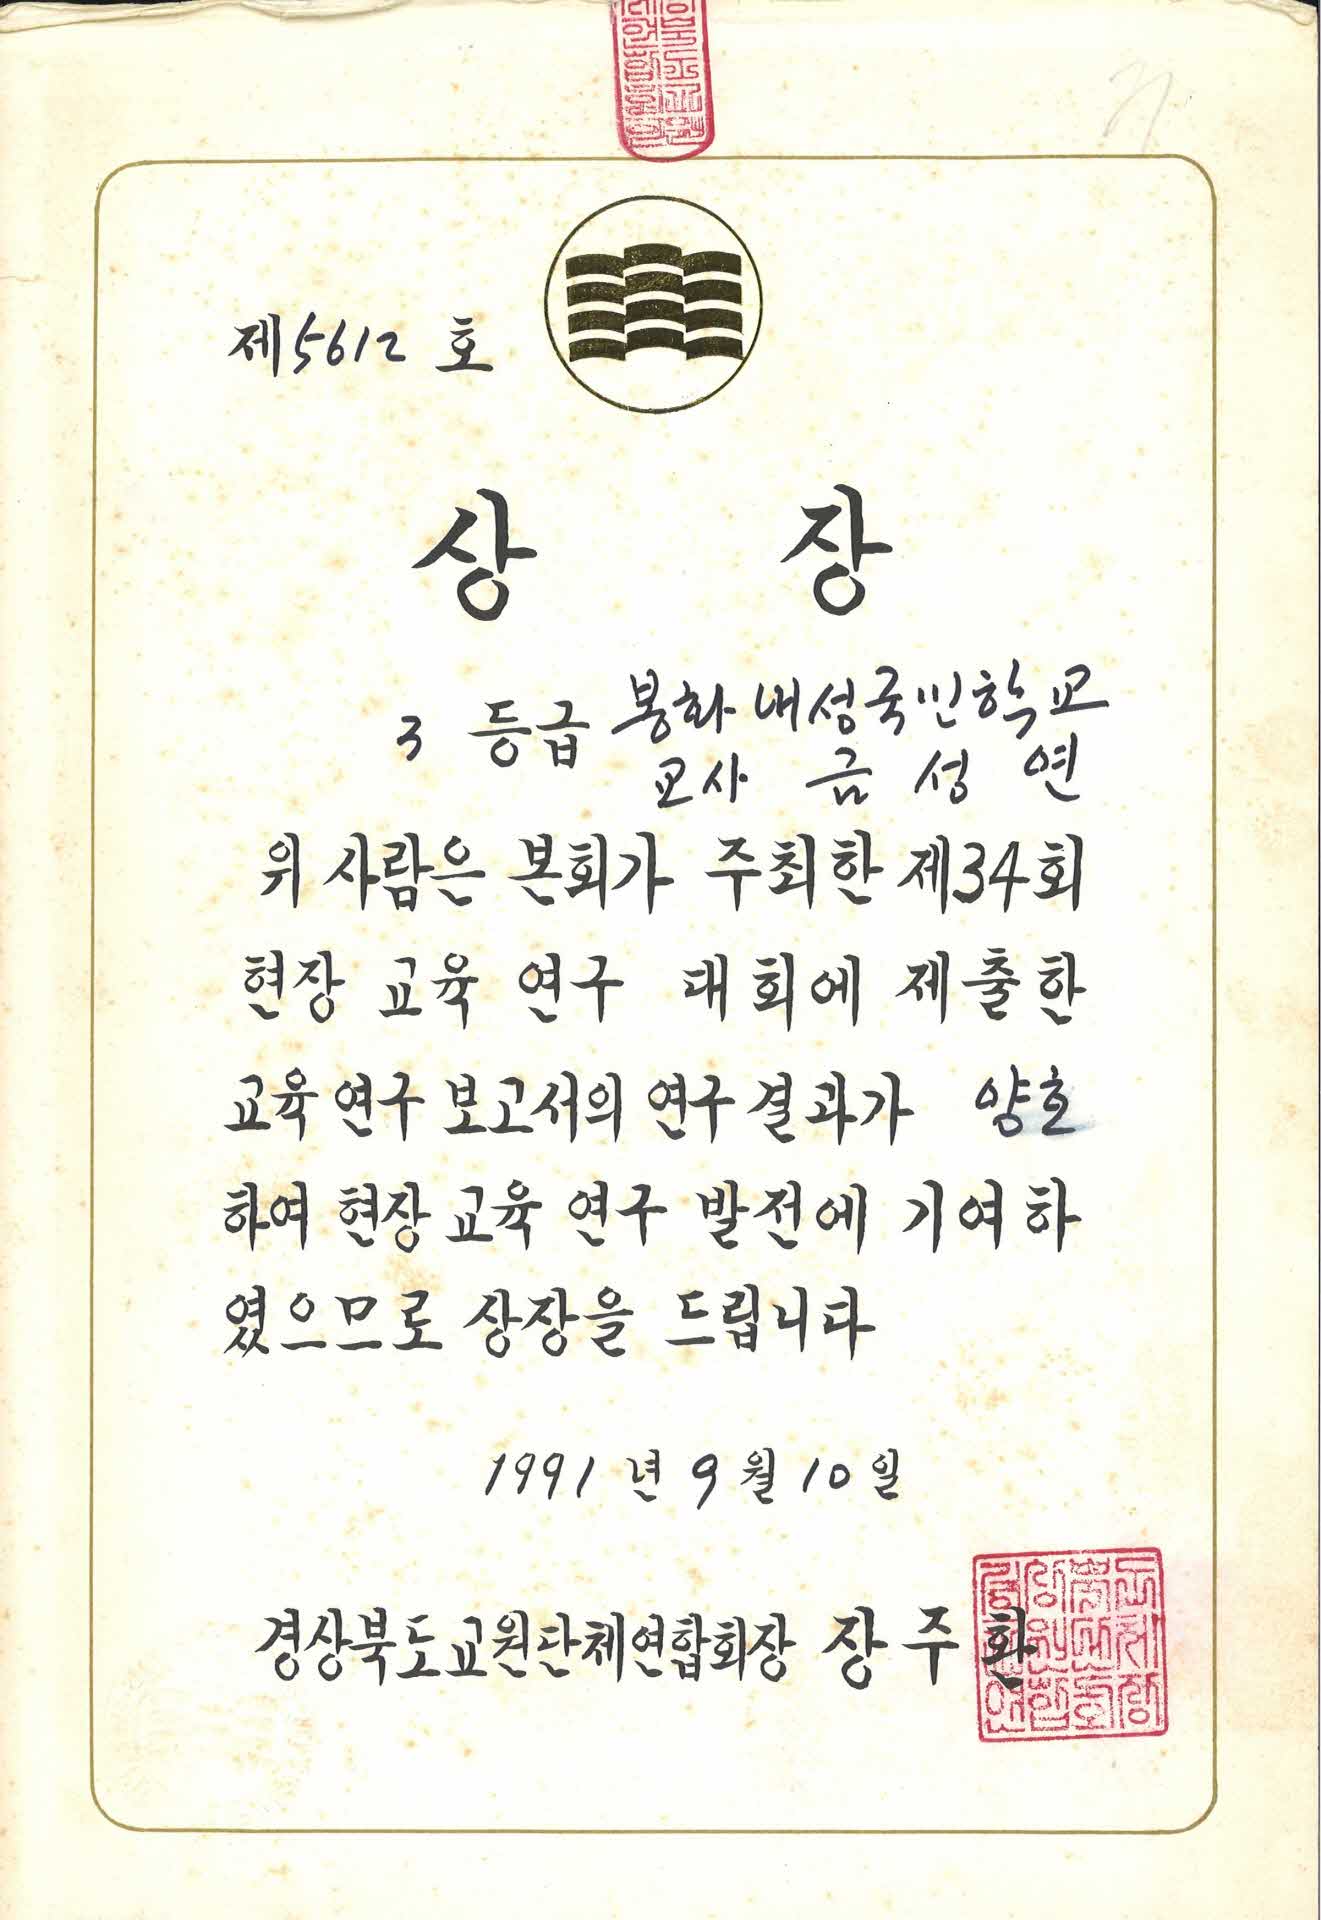 제5612 호
상 장
3 등급 봉화 내성국민학교
교사 금 성 연
위 사람은 본회가 주최한 제34회
현장 교육 연구 대회에 제출한
교육 연구 보고서의 연구 결과가 양호
하여 현장 교육 연구 발전에 기여하
였으므로 상장을 드립니다
1991 년 9 월 10 일
경상북도교원단체연합회장 장 주 환